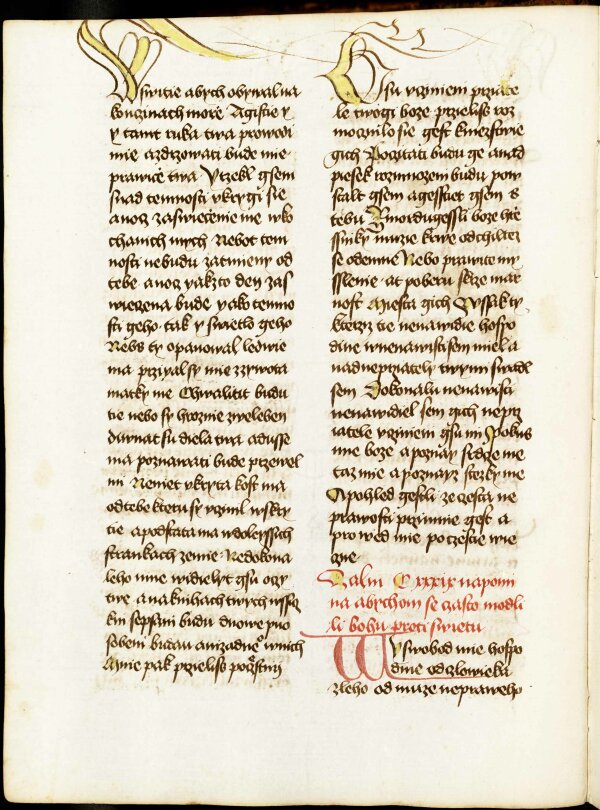 switie abych obywal na
konczinach morze A gistie y
y tamt ruka twa prowodi
mie a zdrzowati bude mie
prawicze twa Y rzekl gsem
snad temnosti vkrygi sie
a nocz zaswieczenie me w ko
chanich mych Nebot tem
nosti nebudu zatmieny od
tebe a nocz yakzto den zas
wieczena bude yako temno
sti geho tak y swietlo geho
Nebs ty opanowal ledwie
ma przyal sy mie z zywota
matky me Chwalitit budu
tie nebo sy hroznie zweleben
diwnat su diela twa a dusse
ma poznawati bude przewel
mi Neniet vkryta kost ma
od tebe kteru sy vczinil w skry
tie a podstata ma w dolegssich
strankach zemie Nedokona
leho mne widielyt gsu oczy
twe a na knihach twych wssicz
kni sepsani budu dnowe puo
sobeni budau a nizadny v nich
A mie pak przielis pocztiwy
gsu vczinieni przate
le twogi boze przielis roz
mocznilo sie gest kniezstwie
gich Pocztati budu ge a nad
piesek rozmnozeni budu pow
stalt gsem a gesstiet gsem s
tebu Zmordugessli boze hrze
ssniky muzie krwe odchilez
se odemne Nebo prawite my
sslenie at poberu skrze mar
nost Miesta gich Wssak ty
kterzyz tie nenawidie hospo
dine w nenawisti sem miel a
nad neprziately twymi swadl
sem Dokonalu nenawisti
nenawidiel sem gich neprz
iatele vczinieni gsu mi Zpokus
mne boze a poznay srdcze me
taz mie a poznay stezky me
A pohled gestli ze czesta ne
prawosti przi mnie gest a
prowed mie po czestie wie
czne
Zalm C xxxix napomi
na abychom se czasto modli
li bohu proti swietu
Wyswobod mie hospo
dine od czlowieka
zleho od muze neprawého